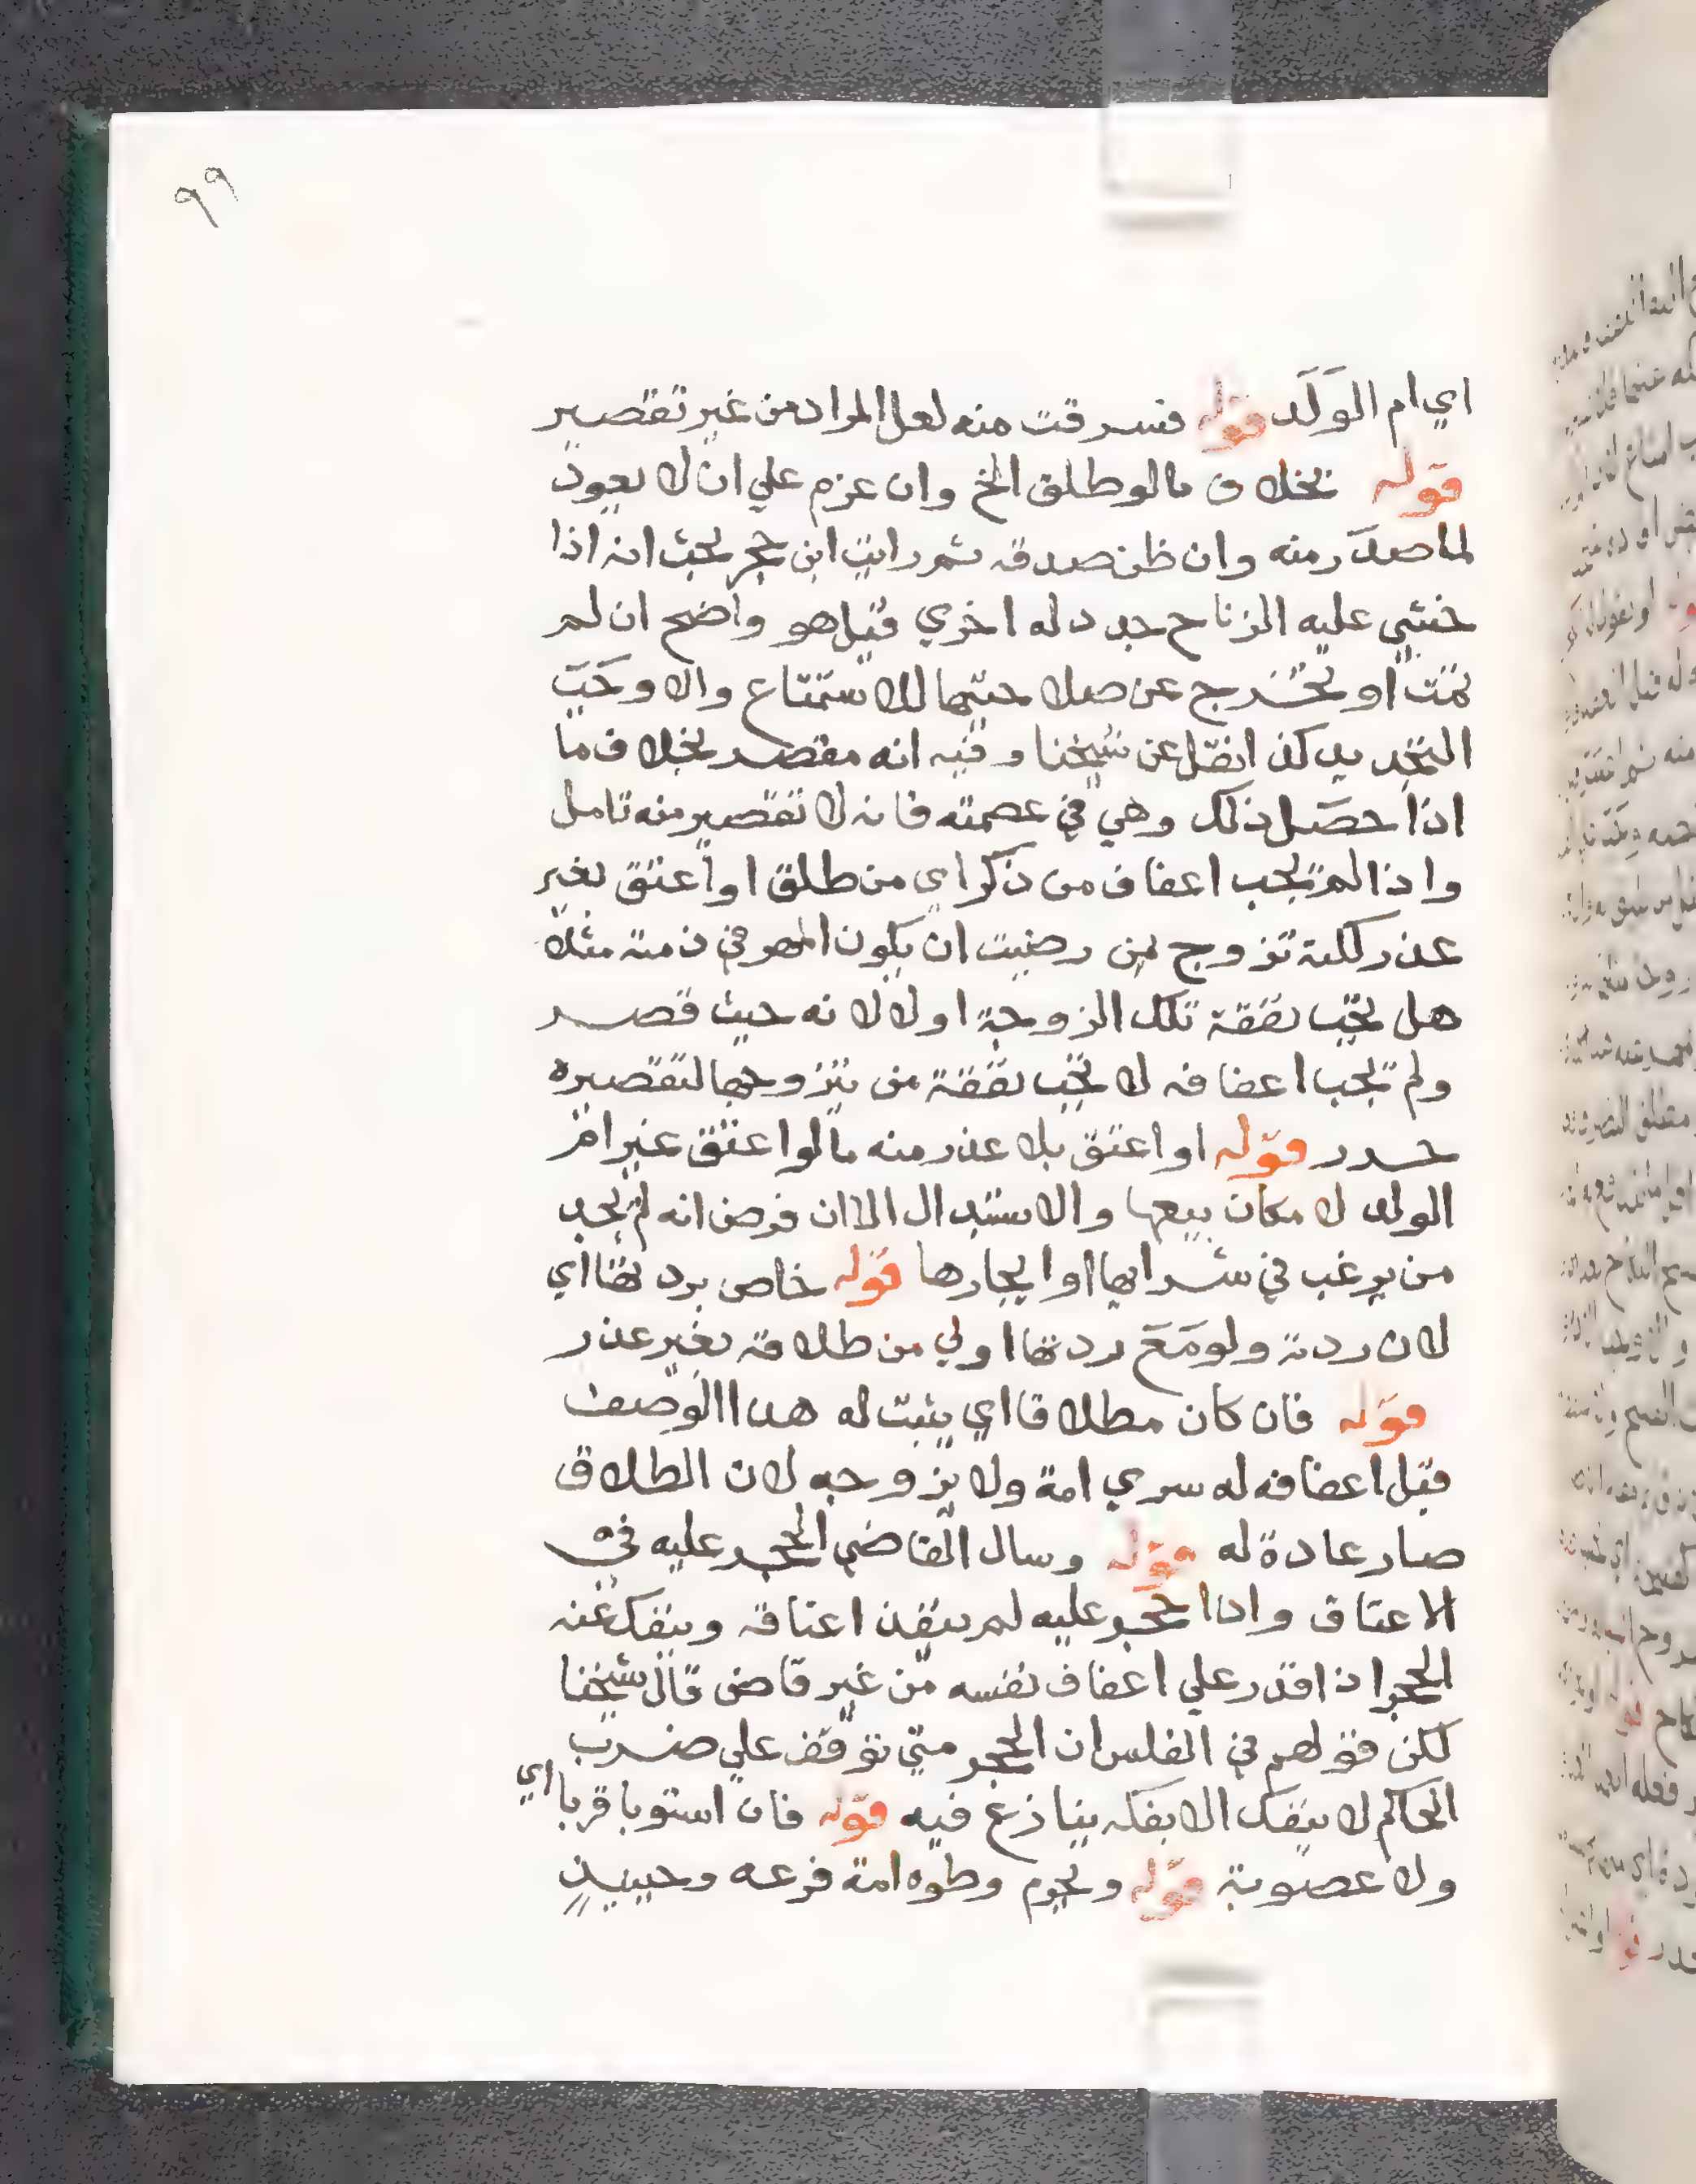 ٩٩
اي ام الوَلَد قوله فسرقت منه لعل المراد من غير تقصير
قوله بخلاف ما لو طلق الخ وان عزم علي ان لا يعود
لما صدر منه وان ظن صدقه ثم رايت ابن حجر بحث انه اذا
خشي عليه الزنا جدد له اخري قبل هو واضح ان لم
تمت او تخرج عن صلاحيتها للاستمتاع والا وجب
التجديد كذا نقل عن شيخنا وفيه انه مقصر بخلاف ما
اذا حصل ذلك وهي في عصمته فانه لا تقصير منه تامل
واذا لم يجب اعفاف من ذكر اي من طلق او اعتق بغير
عذر لكنه تزوج من رضيت ان يكون المهر في ذمته مثلا
هل تجب نفقة تلك الزوجة اولا لانه حيث قصر
ولم يجب اعفافه لا تجب نفقة من يتزوجها لتقصيره
حرر قوله او اعتق بلا عذر منه ما لو اعتق غير ام
الولد لامكان بيعها والاستبدال الا ان فرض انه لم يجد
من يرغب في شرايها او ايجارها قوله خاص بردتها اي
لان ردته ولو مَعَ ردتها اولي من طلاقه بغير عذر
قوله فان كان مطلاقا اي يثبت له هذا الوصف
قبل اعفافه له سري امة ولا يزوجه لان الطلاق
صار عادة له قوله وسال القاضي الحجر عليه في
الاعتاق واذا حجر عليه لم ينفذ اعتاقه وينفك عنه
الحجر اذا قدر علي اعفاف نفسه من غير قاض قال شيخنا
لكن قولهم في الفلس ان الحجر متي توقف علي ضرب
الحاكم لا ينفك الا بفكه ينازع فيه قوله فان استويا قربا اي
ولا عصوبة قوله ويحرم وطوه امة فرعه وحينيذ